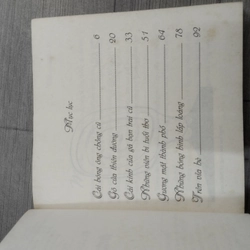 Mục lục
Cái bóng ông chồng cũ 6
Gõ cửa thiên đường 20
Cái kính của gã bạn trai cũ 33
Những niên kỉ tuổi thơ 51
Gương mặt thành phố 64
Những bong bóng lấp loáng 78
Trên vỉa hè 92